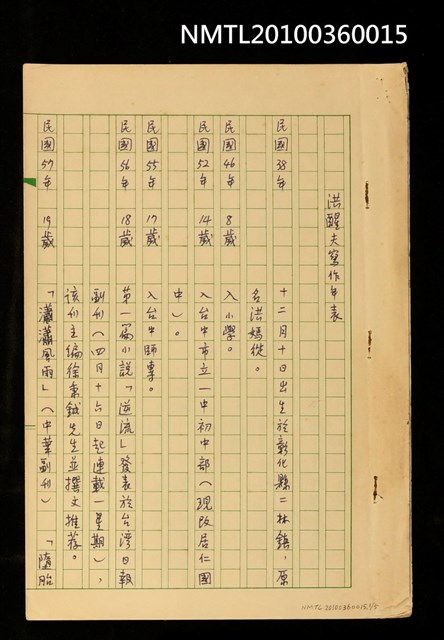 NMTL20100360015
洪醒夫寫作年表
民國38年 十二月十日出生於彰化縣二林鎮，原
名洪媽從。
民國46年 8歲 入小學。
民國52年 14歲 入台中市立一中初中部（現改居仁國
中）。
民國55年 17歲 入台中師專。
民國56年 18歲 第一篇小說「逆流」發表於台灣日報
副刊（四月十六日起連載一星期），
該刊主編徐秉鉞先生並撰文推荐。
民國57年 19歲 「瀟瀟風雨」（中華副刊）「墮胎
NMTL20100360015-1/5